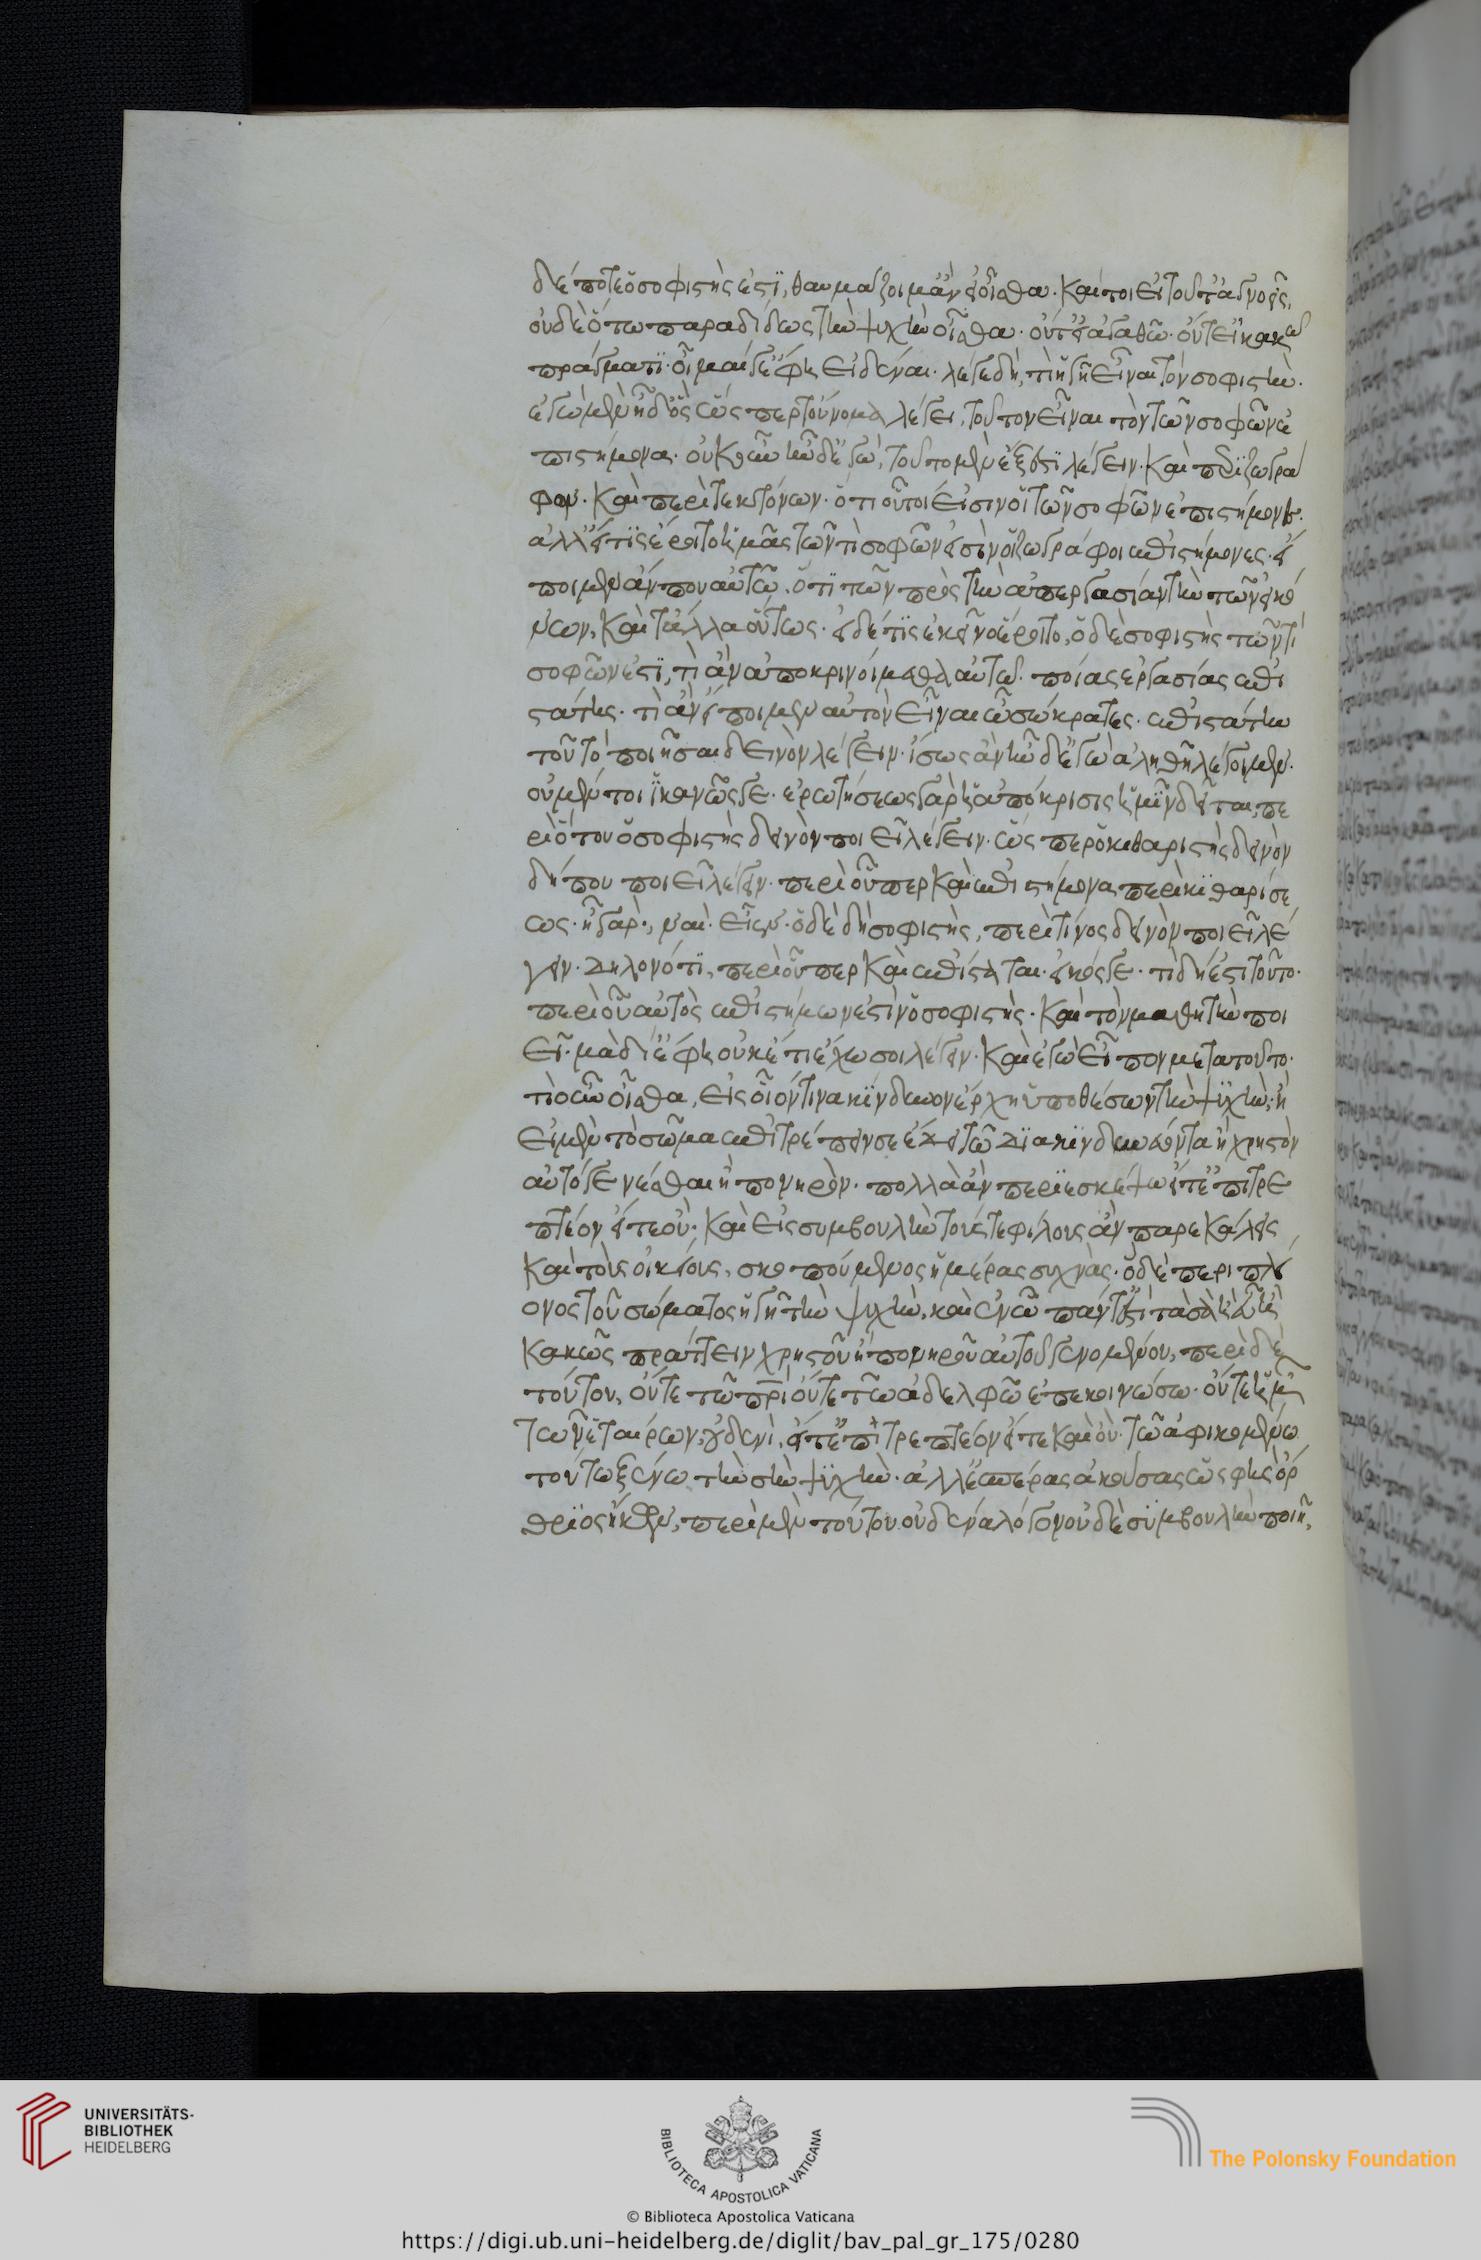 δέ ποτε ὁ σοφιστής ἐστι, θαυμάζοιμ' ἂν εἰ οἶσθα. καί τοι εἰ τοῦτ' ἀγνοεῖς,
οὐδὲ ὅτω παραδίδως τὴν ψυχὴν οἶσθα. οὔτ' εἰ ἀγαθῶ. οὔτε εἰ κακῶ
πράγματι. οἶμαί γε ἔφη εἰδέναι. λέγε δή, τί ἡγῆ εἶναι τὸν σοφιστήν.
ἐγὼ μὲν ἦ δ' ὃς ὥσπερ τοὔνομα λέγει, τοῦτον εἶναι τὸν τῶν σοφῶν ἐ
πιστήμονα. οὐκοῦν ἦν δ' ἐγώ, τοῦτο μὲν ἔξεστι λέγειν. καὶ περὶ ζωγρά
φων. καὶ περὶ τεκτόνων. ὅτι οὗτοί εἰσιν οἱ τῶν σοφῶν ἐπιστήμονες.
ἀλλ' εἴ τις ἔροιτο ἡμᾶς τῶν τί σοφῶν εἰσὶν οἱ ζωγράφοι ἐπιστήμονες. εἴ
ποιμεν ἄν που αὐτῶ. ὅτι τῶν πρὸς τὴν ἀπεργασίαν τὴν τῶν εἰκό
νων. καὶ τἆλλα οὕτως. εἰ δέ τις ἐκεῖνο ἔροιτο, ὁ δὲ σοφιστὴς τῶν τί
σοφῶν ἐστι, τί ἂν ἀποκρινοίμεθα αὐτῶ. ποίας ἐργασίας ἐπι
στάτης. τί ἂν εἴποιμεν αὐτὸν εἶναι ὦ σώκρατες. ἐπιστάτην
τοῦ τὸ ποιῆσαι δεινὸν λέγειν. ἴσως ἂν ἦν δ' ἐγὼ ἀληθῆ λέγοιμεν.
οὐ μέν τοι ἱκανῶς γε. ἐρωτήσεως γὰρ ἡ ἀπόκρισις ἡμῖν δεῖται, πε
ρὶ ὅτου ὁ σοφιστὴς δεινὸν ποιεῖ λέγειν. ὥσπερ ὁ κιθαριστὴς δεινὸν
δήπου ποιεῖ λέγειν. περὶ οὗπερ καὶ ἐπιστήμονα περὶ κιθαρίσε
ως. ἦ γάρ., ναί. εἶεν. ὁ δὲ δὴ σοφιστὴς, περὶ τίνος δεινὸν ποιεῖ λέ
γειν. δηλονότι, περὶ οὗπερ καὶ ἐπίσταται. εἰκός γε. τί δή ἐστι τοῦτο.
περὶ οὗ αὐτὸς ἐπιστήμων ἐστὶν ὁ σοφιστὴς. καὶ τὸν μαθητὴν ποι
εῖ. μὰ δί' ἔφη οὐκέτι ἔχω σοι λέγειν. καὶ ἐγὼ εἶπον μετὰ τοῦτο.
τί οὖν οἶσθα, εἰς οἷόν τινα κίνδυνον ἔρχη ὑποθέσων τὴν ψυχὴν; ἢ
εἰ μὲν τὸ σῶμα ἐπιτρέπειν σε ἔδει τῶ διακινδυνεύοντα ἢ χρηστὸν
αὐτὸ γενέσθαι ἢ πονηρὸν. πολλὰ ἂν περιεσκέψω εἴτ' ἐπιτρε
πτέον εἴτε οὐ. καὶ εἰς συμβουλὴν τούς τε φίλους ἂν παρεκάλεις
καὶ τοὺς οἰκείους, σκοπούμενος ἡμέρας συχνὰς. ὃ δὲ περὶ πλεί
ονος τοῦ σώματος ἡγῆ τὴν ψυχὴν, καὶ ἐν ὧ πάντ' ἐστὶ τὰ σὰ ἢ εὖ ἢ
κακῶς πράττειν χρηστοῦ ἢ πονηροῦ αὐτοῦ γενομένου, περὶ δὲ
τούτου, οὔτε τῶ πρὶ οὔτε τῶ ἀδελφῶ ἐπεκοινώσω. οὔτε ἡμῶν
τῶν ἑταίρων, οὐδενὶ, εἴτ' ἐπιτρεπτέον εἴτε καὶ οὐ. τῶ ἀφικομένω
τούτω ξένω τὴν σὴν ψυχὴν. ἀλλ' ἑσπέρας ἀκούσας ὡς φὴς ὄρ
θριος ἥκων, περὶ μὲν τούτου οὐδένα λόγον οὐδὲ συμβουλὴν ποιῆ,
UNIVERSITÄTS-
BIBLIOTHEK
HEIDELBERG
BIBLIOTECA APOSTOLICA VATICANA
The Polonsky Foundation
© Biblioteca Apostolica Vaticana
https://digi.ub.uni-heidelberg.de/diglit/bav_pal_gr_175/0280